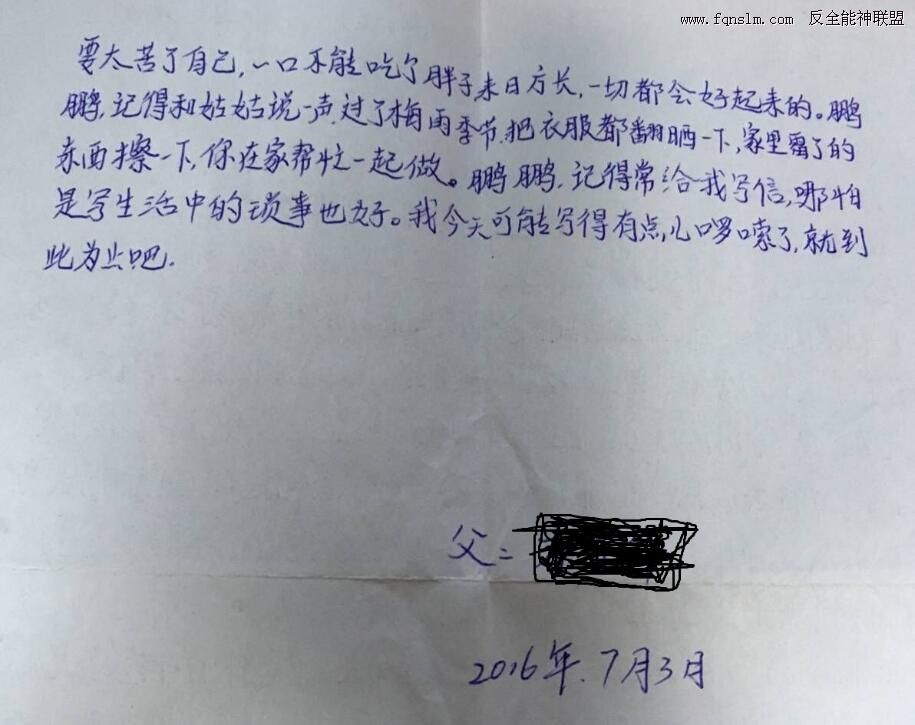 www.fqnslm.com 反全能神联盟
要太苦了自己,一口不能吃个胖子,来日方长,一切都会好起来的。鹏
鹏,记得和姑姑说一声,过了梅雨季节,把衣服都翻晒一下,家里霉了的
东西擦一下,你在家帮忙一起做。鹏鹏,记得常给我写信,哪怕
是写生活中的琐事也好。我今天可能写得有点儿啰嗦了,就到
此为止吧.
父:
2016年.7月3日